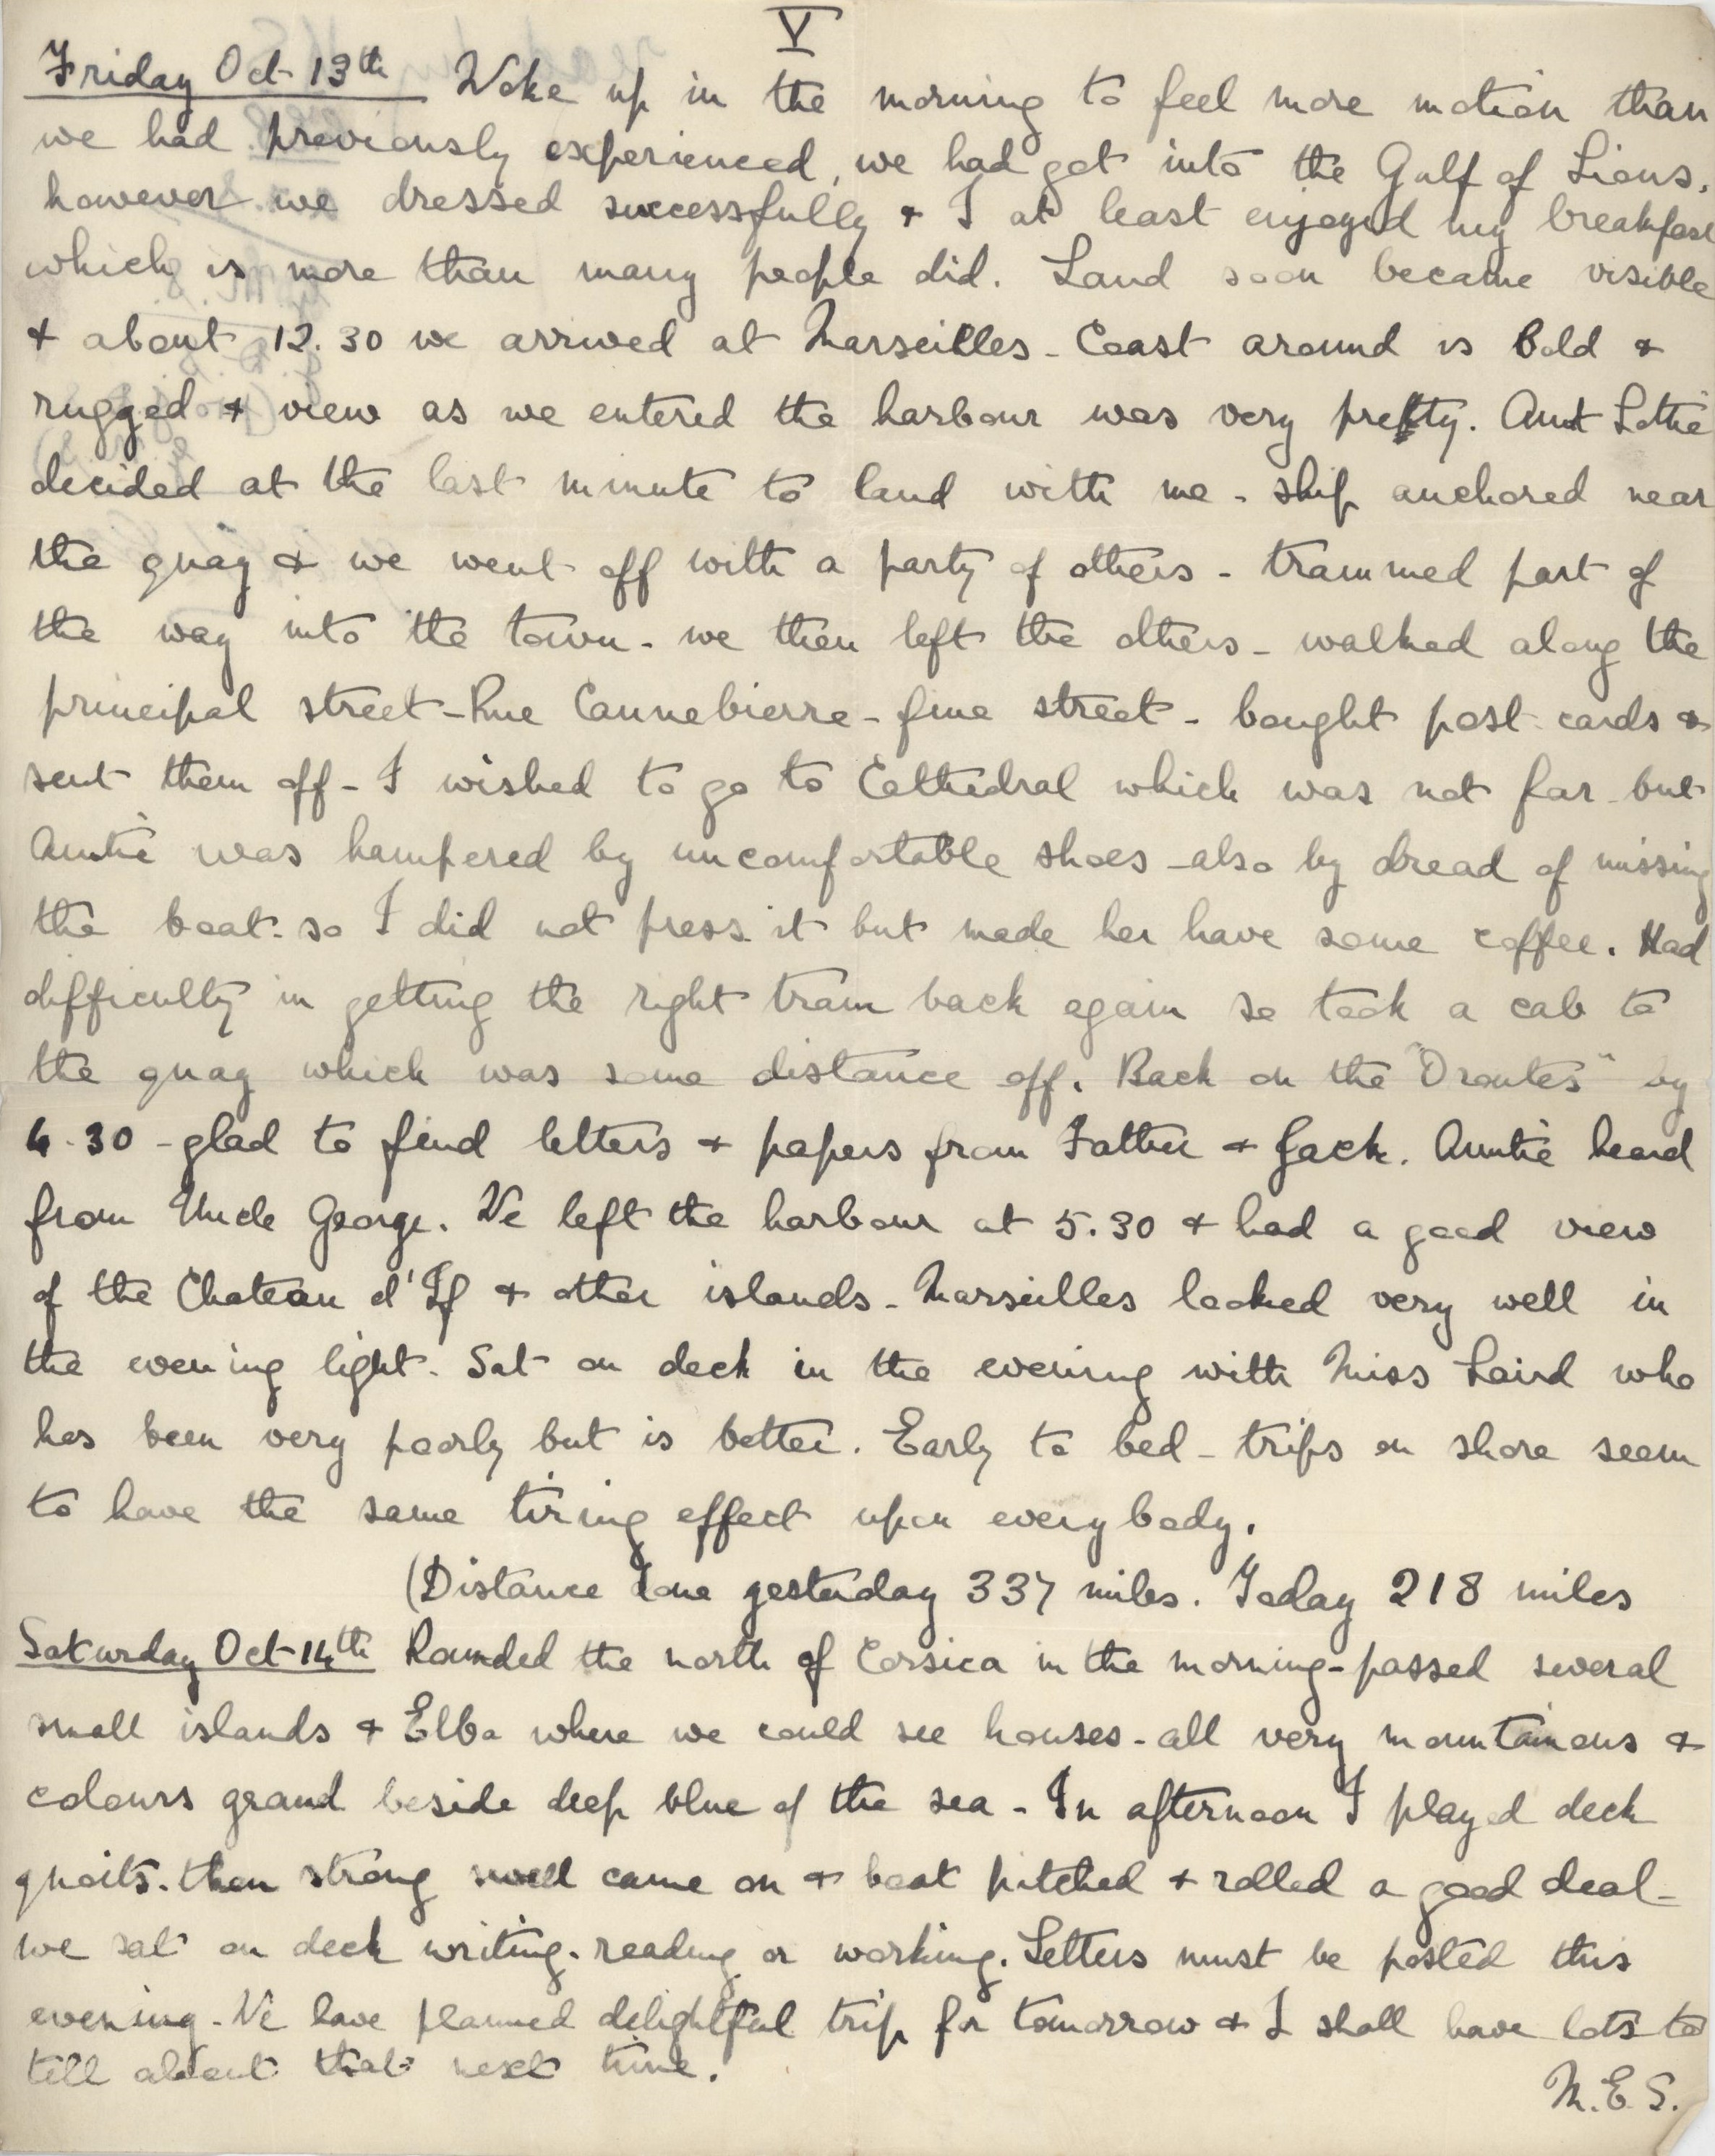 V
Friday Oct 13th Woke up in the morning to feel more motion than
we had previously experienced, we had got into the Gulf of Lions.
however we dressed successfully & I at least enjoyed my breakfast
which is more than many people did. Land soon became visible
& about 12.30 we arrived at Marseilles - Coast around is bold &
rugged & view as we entered the harbour was very pretty. Aunt Lottie
decided at the last minute to land with me - ship anchored near
the quay & we went off with a party of others - trammed part of
the way into the town - we then left the others - walked along the
principal street - Rue Cannebierre - fine street - bought post cards &
sent them off - I wished to go to Cathedral which was not far but
Auntie was hampered by uncomfortable shoes - also by dread of missing
the boat - so I did not press it but made her have some coffee. Had
difficulty in getting the right tram back again so took a cab to
the quay which was some distance off. Back on the "Orontes" by
4.30 - glad to find letters & papers from Father & Jack. Auntie heard
from Uncle George. We left the harbour at 5.30 & had a good view
of the Chateau d'If & other islands - Marseilles looked very well in
the evening light. Sat on deck in the evening with Miss Laird who
has been very poorly but is better. Early to bed - trips on shore seem
to have the same tiring effect upon everybody.
(Distance done yesterday 337 miles. Today 218 miles
Saturday Oct 14th Rounded the north of Corsica in the morning - passed several
small islands & Elba where we could see houses - all very mountainous &
colours grand beside deep blue of the sea - In afternoon I played deck
quoits. then strong swell came on & boat pitched & rolled a good deal -
we sat on deck writing - reading or working. Letters must be posted this
evening - We have planned delightful trip for tomorrow & I shall have lots to
tell about that next time.
M.E.S.